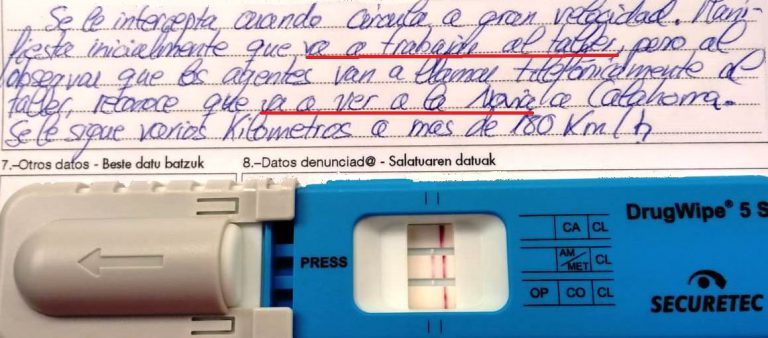 Se le intercepta cuando circula a gran velocidad. Mani-
fiesta inicialmente que va a trabajar al taller, pero al
observar que los agentes van a llamar telefónicamente al
taller, reconoce que va a ver a la Novia a Catahorra.
Se le sigue varios Kilometros a mas de 180 Km/h
7.–Otros datos - Beste datu batzuk
8.–Datos denunciad@ - Salatuaren datuak
PRESS
DrugWipe® 5 S
CA CL
AM/MET CL
OP CO CL
SECURETEC